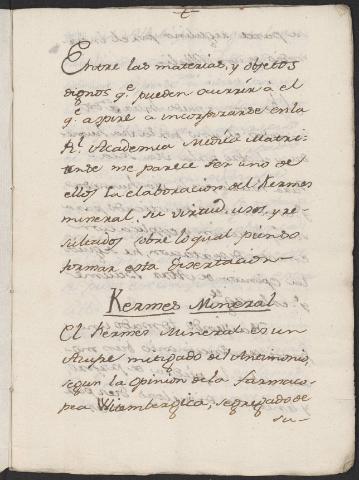 Entre las materias, y objetos
dignos q.e pueden ocurrir à el
q.e aspire a incorporarse en la
R.l Academia Medica Matri-
tense me parece ser uno de
ellos la elaboracion del Kermes
mineral, su virtud, usos, y re-
sultados sobre lo qual pienso
formar esta disertacion—
Kermes Mineral
El Kermes Mineral es un
Azufre mitigado del Antimonio,
segun la opinion de la Farmaco-
pea Witembergica, segregado de
su—